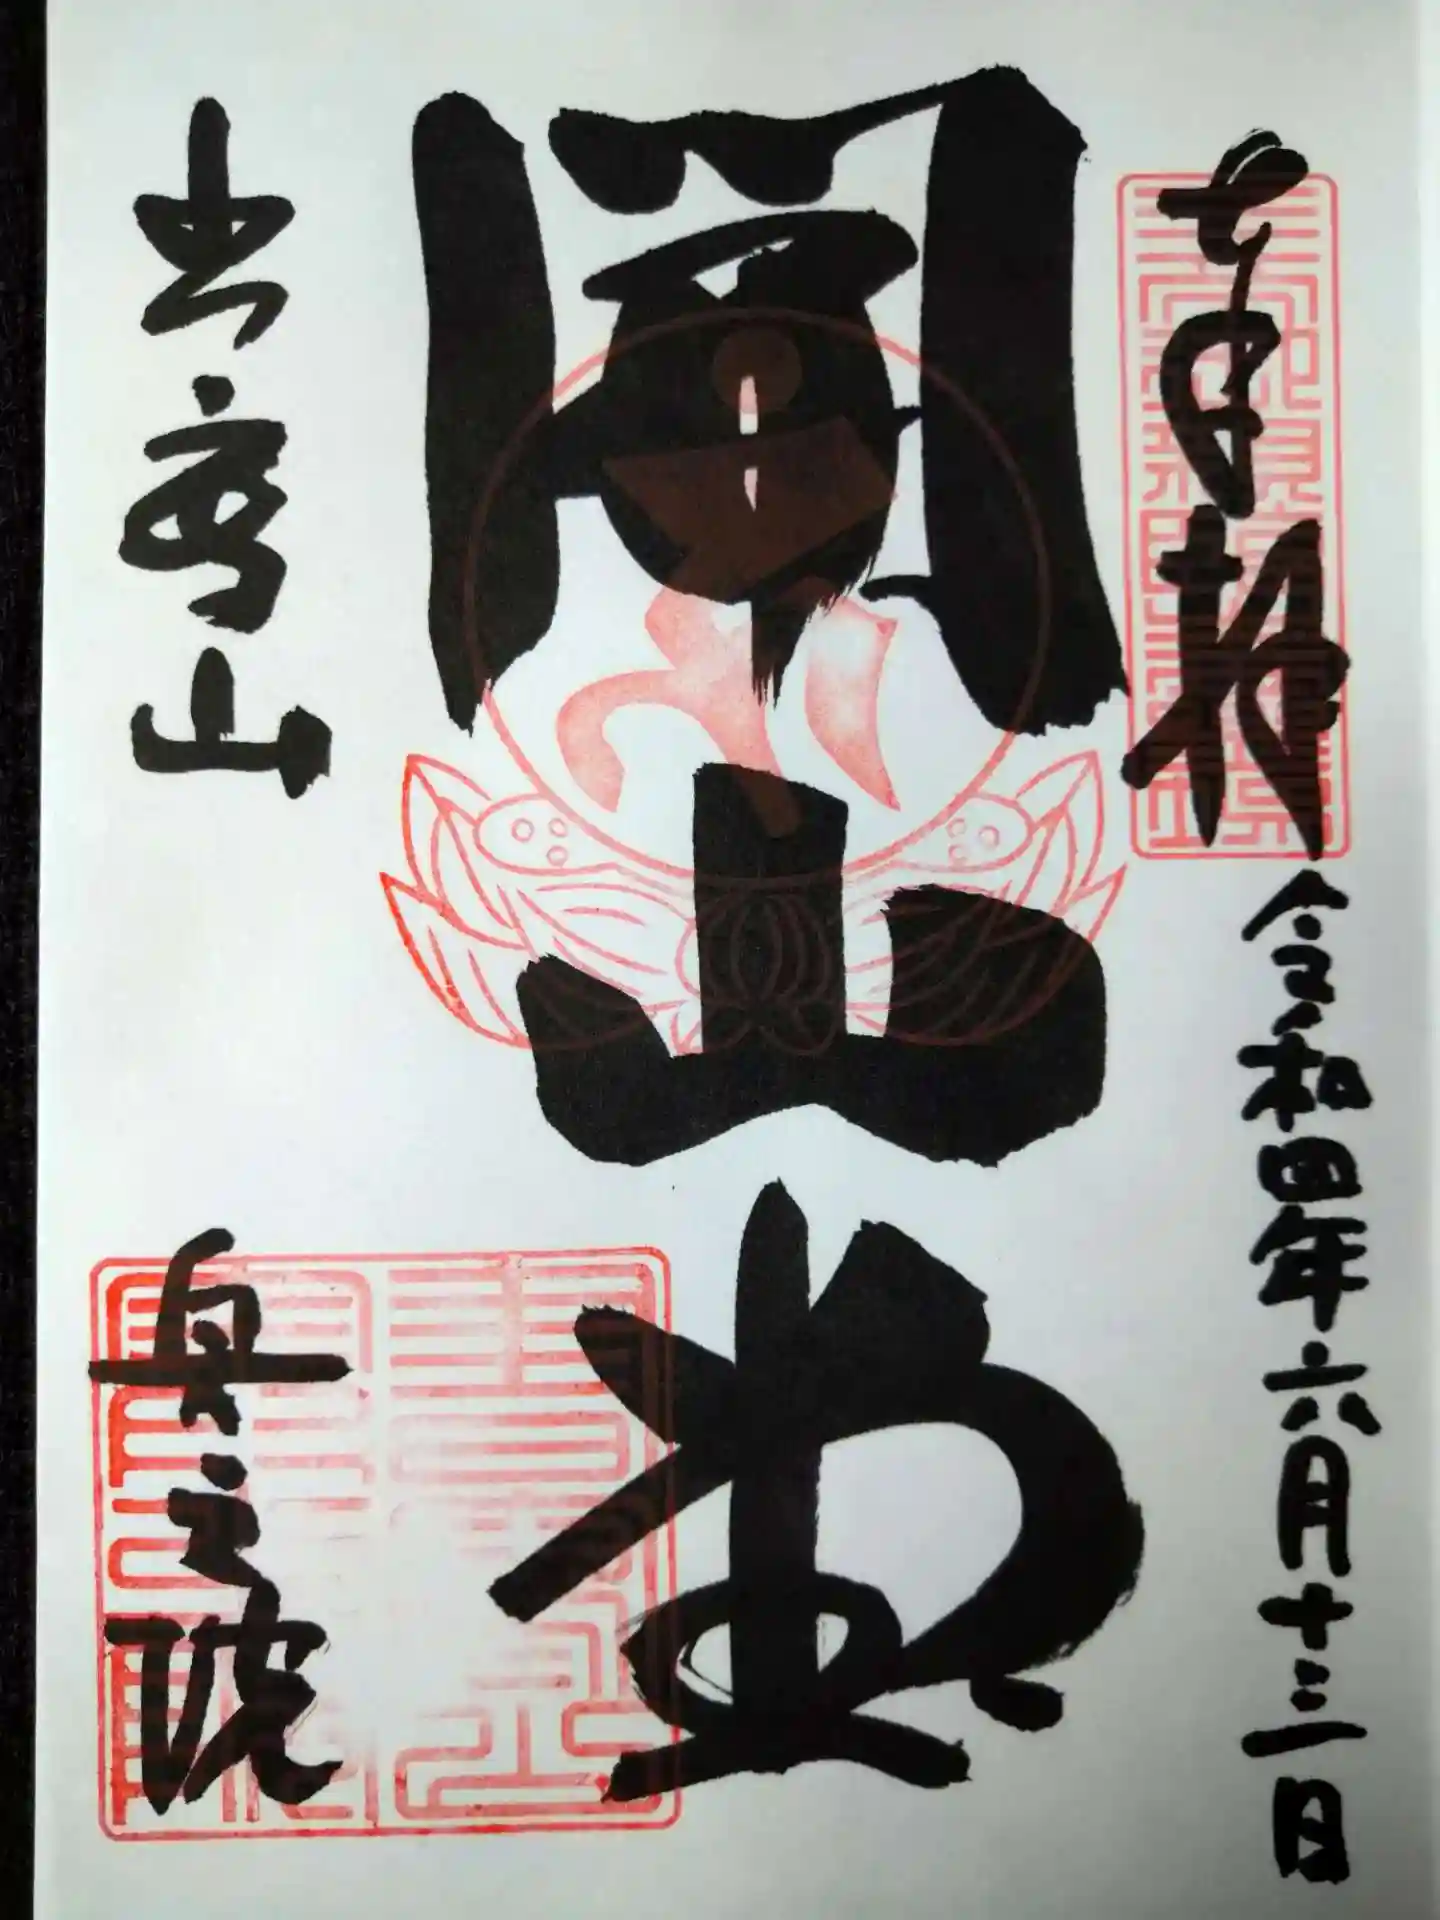 奉拝 令和四年六月十三日
開山堂
書寫山 奥之院